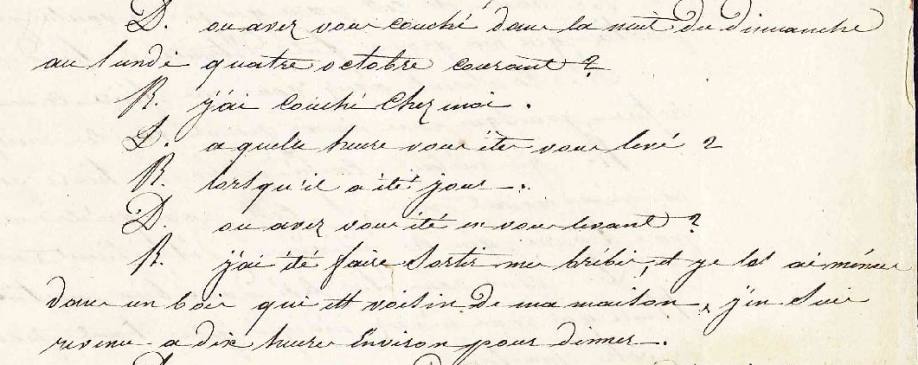 D. ou avez vous couché dans la nuit du dimanche
au lundi quatre octobre courant ?
R. j'ai couché chez moi .
D. a quelle heure vous êtes vous levé ?
R. lorsqu'il a été jour .
D. ou avez vous été en vous levant ?
R. j'ai été faire sortir mes brebis, et je les ai ménées
dans un bois qui est voisin de ma maison, j'en suis
revenu a dix heures environ pour dinner .